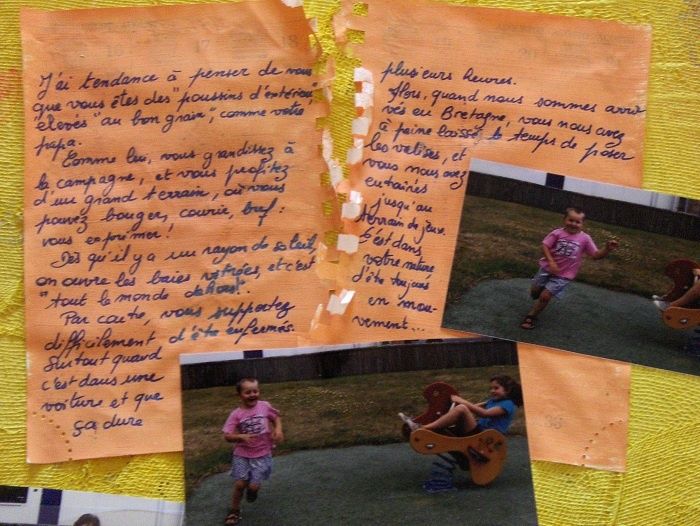 J'ai tendance à penser de vous
que vous êtes des "poussins d'intérieur"
élevés "au bon grain", comme votre
papa.
Comme lui, vous grandissez à
la campagne, et vous profitez
d'un grand terrain, où vous
pouvez bouger, courir, bref :
vous exprimer !
Dès qu'il y a un rayon de soleil,
on ouvre les baies vitrées, et c'est
"tout le monde dehors".
Par contre, vous supportez
difficilement d'être enfermés.
Surtout quand
c'est dans une
voiture et que
ça dure
plusieurs heures.
Alors, quand nous sommes arri-
vés en Bretagne, vous nous avez
à peine laissé le temps de poser
les valises, et
vous nous avez
entraînés
jusqu'au
terrain de jeux.
C'est dans
votre nature
d'être toujours
en mou-
vement...